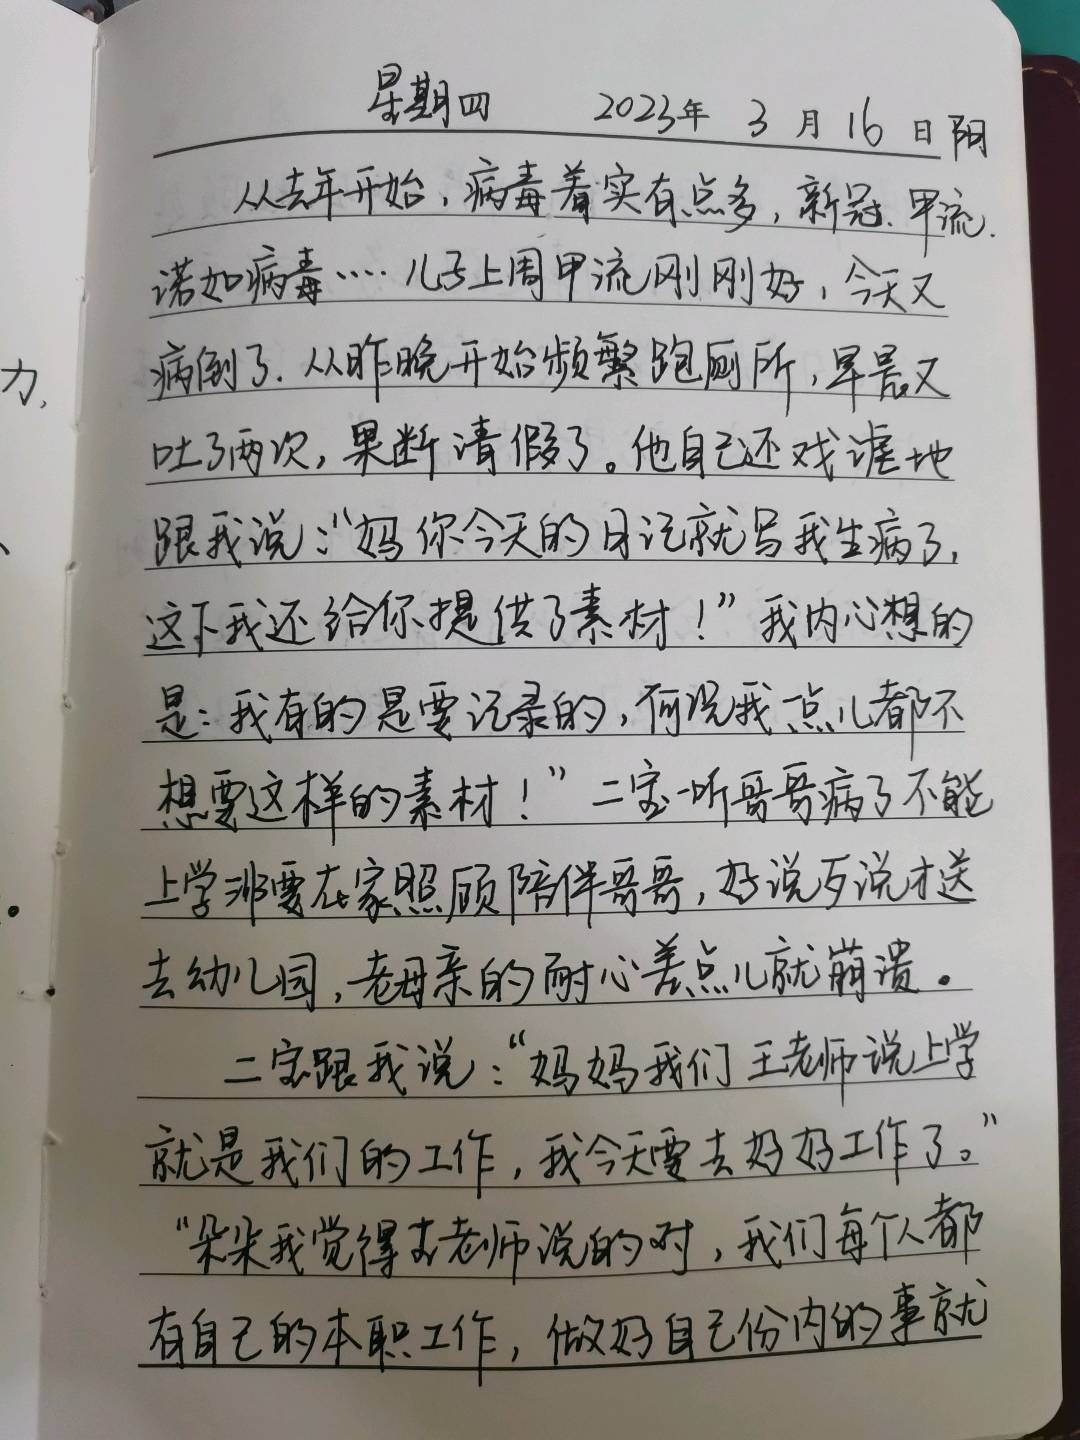 星期四 2023年 3月16日 阳
从去年开始，病毒着实有点多，新冠、甲流、
诺如病毒····· 儿子上周甲流刚刚好，今天又
病倒了. 从昨晚开始频繁跑厕所，早晨又
吐了两次，果断请假了。他自己还戏谑地
跟我说：“妈你今天的日记就写我生病了，
这下我还给你提供了素材！”我内心想的
是：我有的是要记录的，何况我一点儿都不
想要这样的素材！”二宝一听哥哥病了不能
上学非要在家照顾陪伴哥哥，好说歹说才送
去幼儿园，老母亲的耐心差点儿就崩溃。
二宝跟我说：“妈妈我们王老师说上学
就是我们的工作，我今天要去好好工作了。”
“朵朵我觉得老师说的对，我们每个人都
有自己的本职工作，做好自己份内的事就
力，